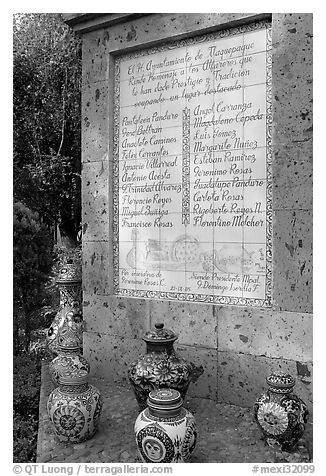 El H. Ayuntamiento de Tlaquepaque
Rinde Homenaje a los Alfareros que
le han dado Prestigio y Tradicion
ocupando un lugar destacado
Pantaleon Panduro
José Beltran
Anacleto Camines
Felix Cerrano
Ignacio Villarreal
Antonio Acosta
Sª Trinidad Alvarez
Florencio Reyes
Miguel Zuñiga
Francisco Rosas
Angel Carranza
Magdaleno Cepeda
Luis Gomez
Margarito Nuñez
Esteban Ramirez
Geronimo Rosas
Guadalupe Panduro
Carlos Rosas
Rigoberto Reyes N.
Florentino Melchor
Por iniciativa de
Geronimo Rosas C.
Siendo Presidente Mpal.
© QT Luong / terragalleria.com # mexi32099